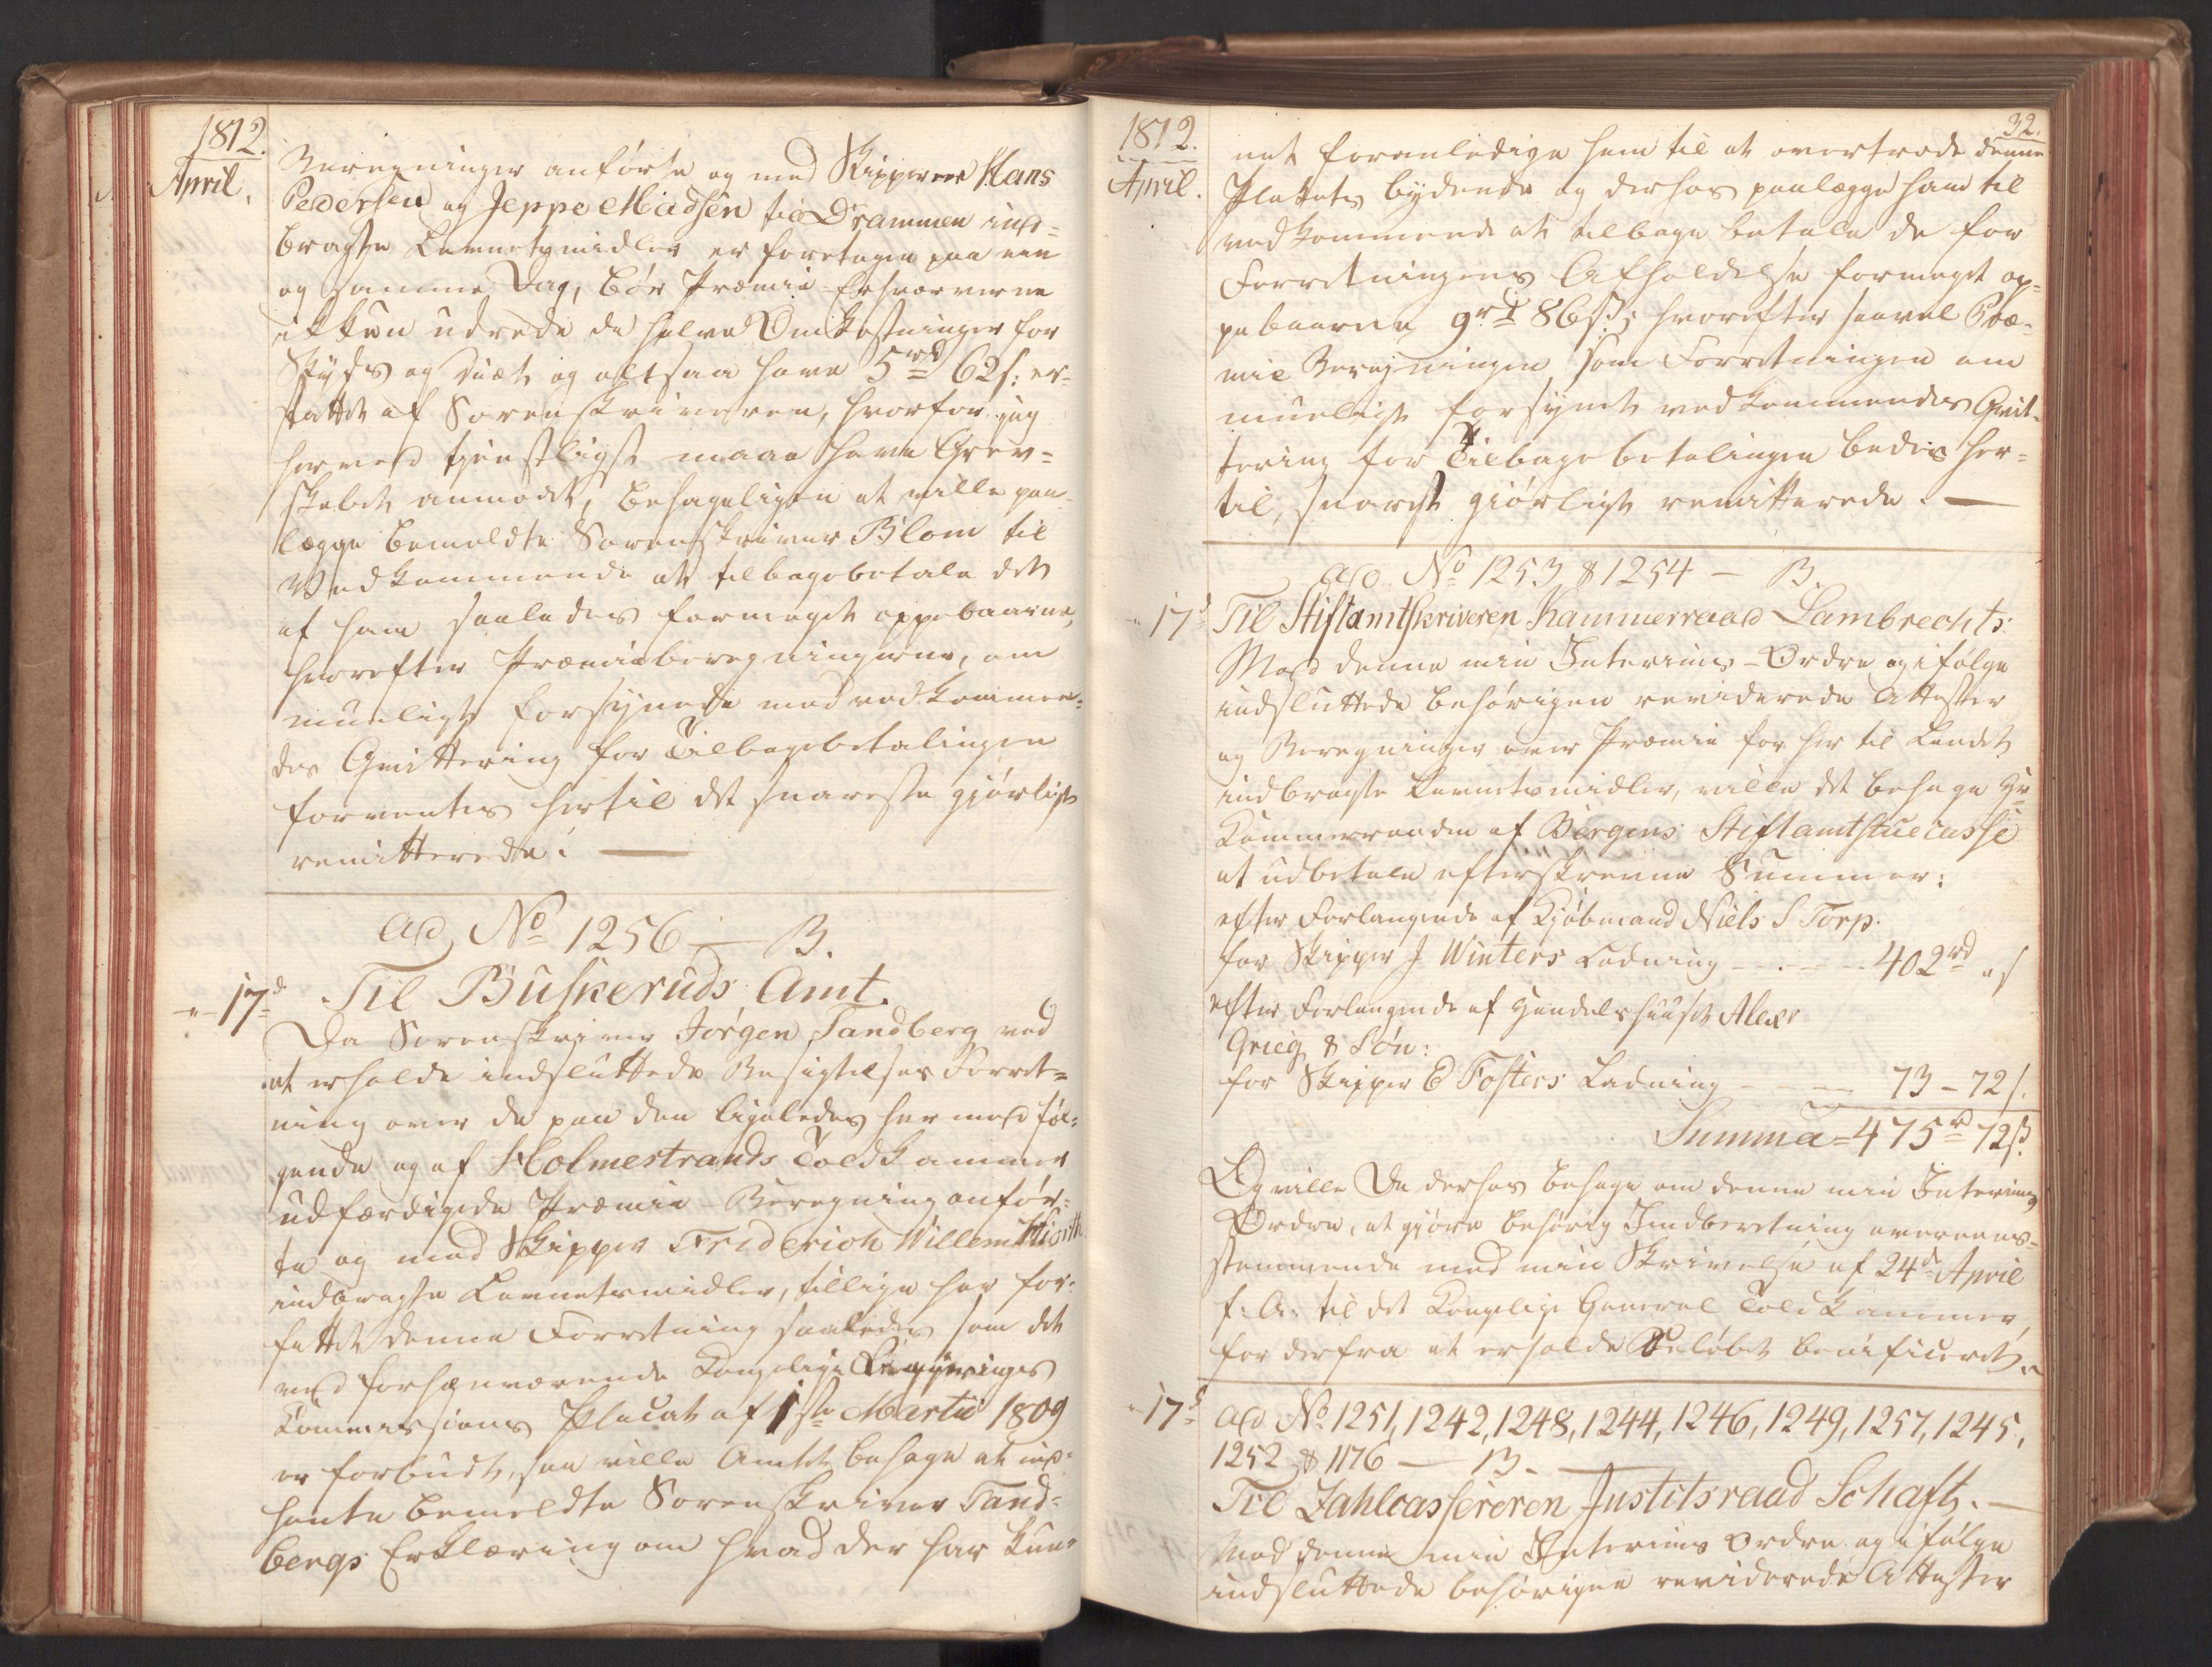 1812.
April.
Beregninger anførte og med Skipperne Hans
Pedersen og Jeppe Madsen til Drammen ind=
bragte Levnetsmidler er foretagen paa een
og samme Dag, bør Præmie-Erhververne
ikkun udrede de halve Omkostninger for
Skyds og Diæt og altsaa have 5rd 62s: er=
stattet af Sorenskriveren, hvorfor jeg
herved tjenstligst maae have Grev=
skabet anmodet, behageligen at ville paa=
lægge bemeldte Sorenskriver Blom til
Vedkommende at tilbagebetale det
af ham saaledes formeget oppebaarne,
hvorefter Præmieberegningerne, om
mueligt forsynede med vedkommen=
des Qvittering for Tilbagebetalingen
forventes hertil det snareste gjørligt
remitterede. —
Ad No 1256 — B.
-"- 17d Til Buskeruds Amt.
Da Sorenskriver Jørgen Sandberg ved
at erholde indsluttede Besigtelses Forret=
ning over de paa den ligeledes hermed føl=
gende og af Holmestrands Toldkammer
udfærdigede Præmie-Beregning anfør=
te og med Skipper Friderich Willem Hiorth
indbragte Levnetsmidler, tillige har for=
fattet denne Forretning saaledes som det
ved forhenværende Kongelige Regjerings
Commissions Placat af 1ste Martii 1809
er forbudt, saa ville Amtet behage at ind=
hente bemeldte Sorenskriver Sand=
bergs Erklæring om hvad der har kun=
32.
1812.
April.
net foranledige ham til at overtræde denne
Plakats bydende og derhos paalægge ham til
vedkommende at tilbage betale de for
Forretningens Afholdelse formeget op=
pebaarne 9rd 86s; hvorefter saavel Præ=
mie Beregningen som Forretningen om
mueligt forsynet vedkommendes Qvit=
tering for Tilbagebetalingen bedes her=
til, snarest giørligt remitterede. —
Ad No 1253 & 1254 — B.
-"- 17d Til Stiftamtskriveren Kammerraad Lambrechts.
Mod denne min Interims-Ordre og ifølge
indsluttede behørigen reviderede Attester
og Beregninger over Præmie for her til Landet
indbragte Levnetsmidler, ville det behage Hr
Kammerraaden af Bergens Stiftamtstuecasse
at udbetale efterskrevne Summer:
efter Forlangende af Kjøbmand Niels S Torp.
for Skipper J Winters Ladning — - — - - 402rd " s
efter Forlangende af Handelshuuset Alexr
Grieg & Søn:
for Skipper E Fosters Ladning — — — 73 - 72s.
Summa = 475rd 72s.
Og ville De derhos behage om denne min Interims
Ordre, at gjøre behørig Indberetning overeens=
stemmende med min Skrivelse af 24de April
f. A. til det Kongelige General Toldkammer,
for derfra at erholde Beløbet benificeret.
" 17d Ad No 1251, 1242, 1248, 1244, 1246, 1249, 1257, 1245,
1252 & 1176 — B. —
Til Zahlcassereren Justitsraad Schaft. —
Mod denne min Interims Ordre og ifølge
indsluttede behørigen reviderede Attester